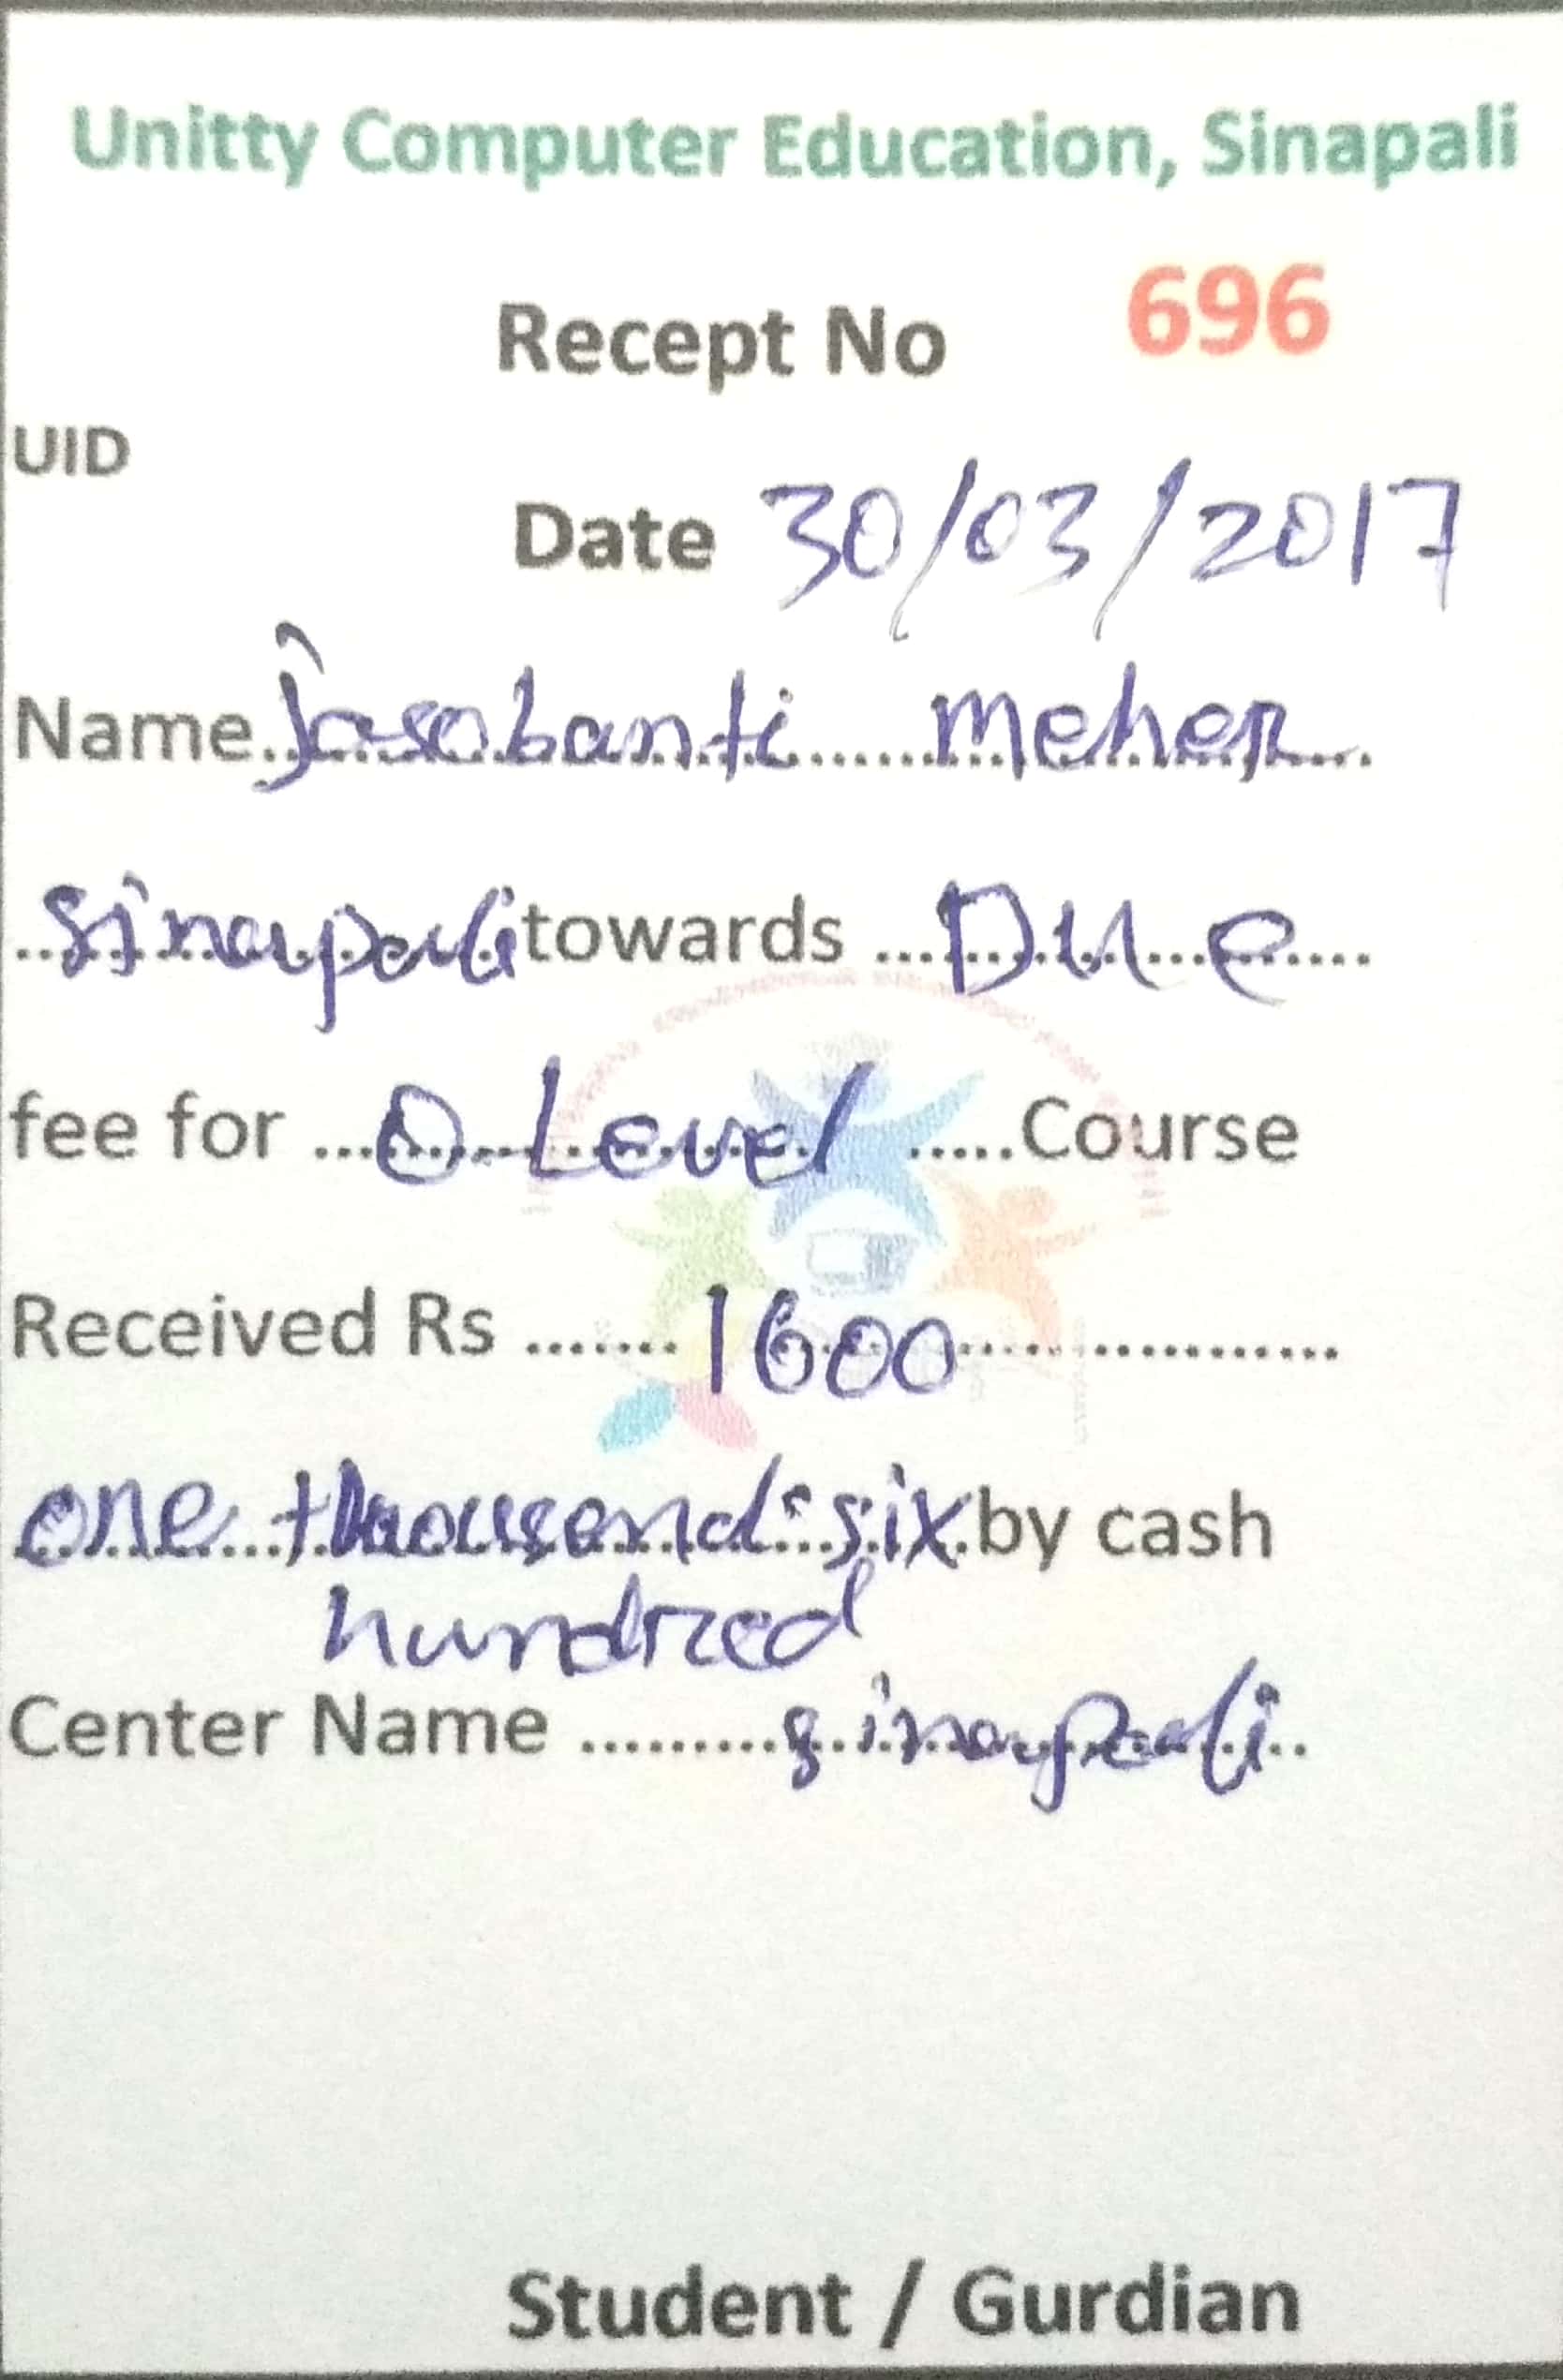 Unitty Computer Education, Sinapali
Recept No 696
UID
Date 30/03/2017
Name Jasobanti Meher
Sinapali towards Due
fee for O Level Course
Received Rs 1600
one thousend six by cash
hundred
Center Name sinapali
Student / Gurdian